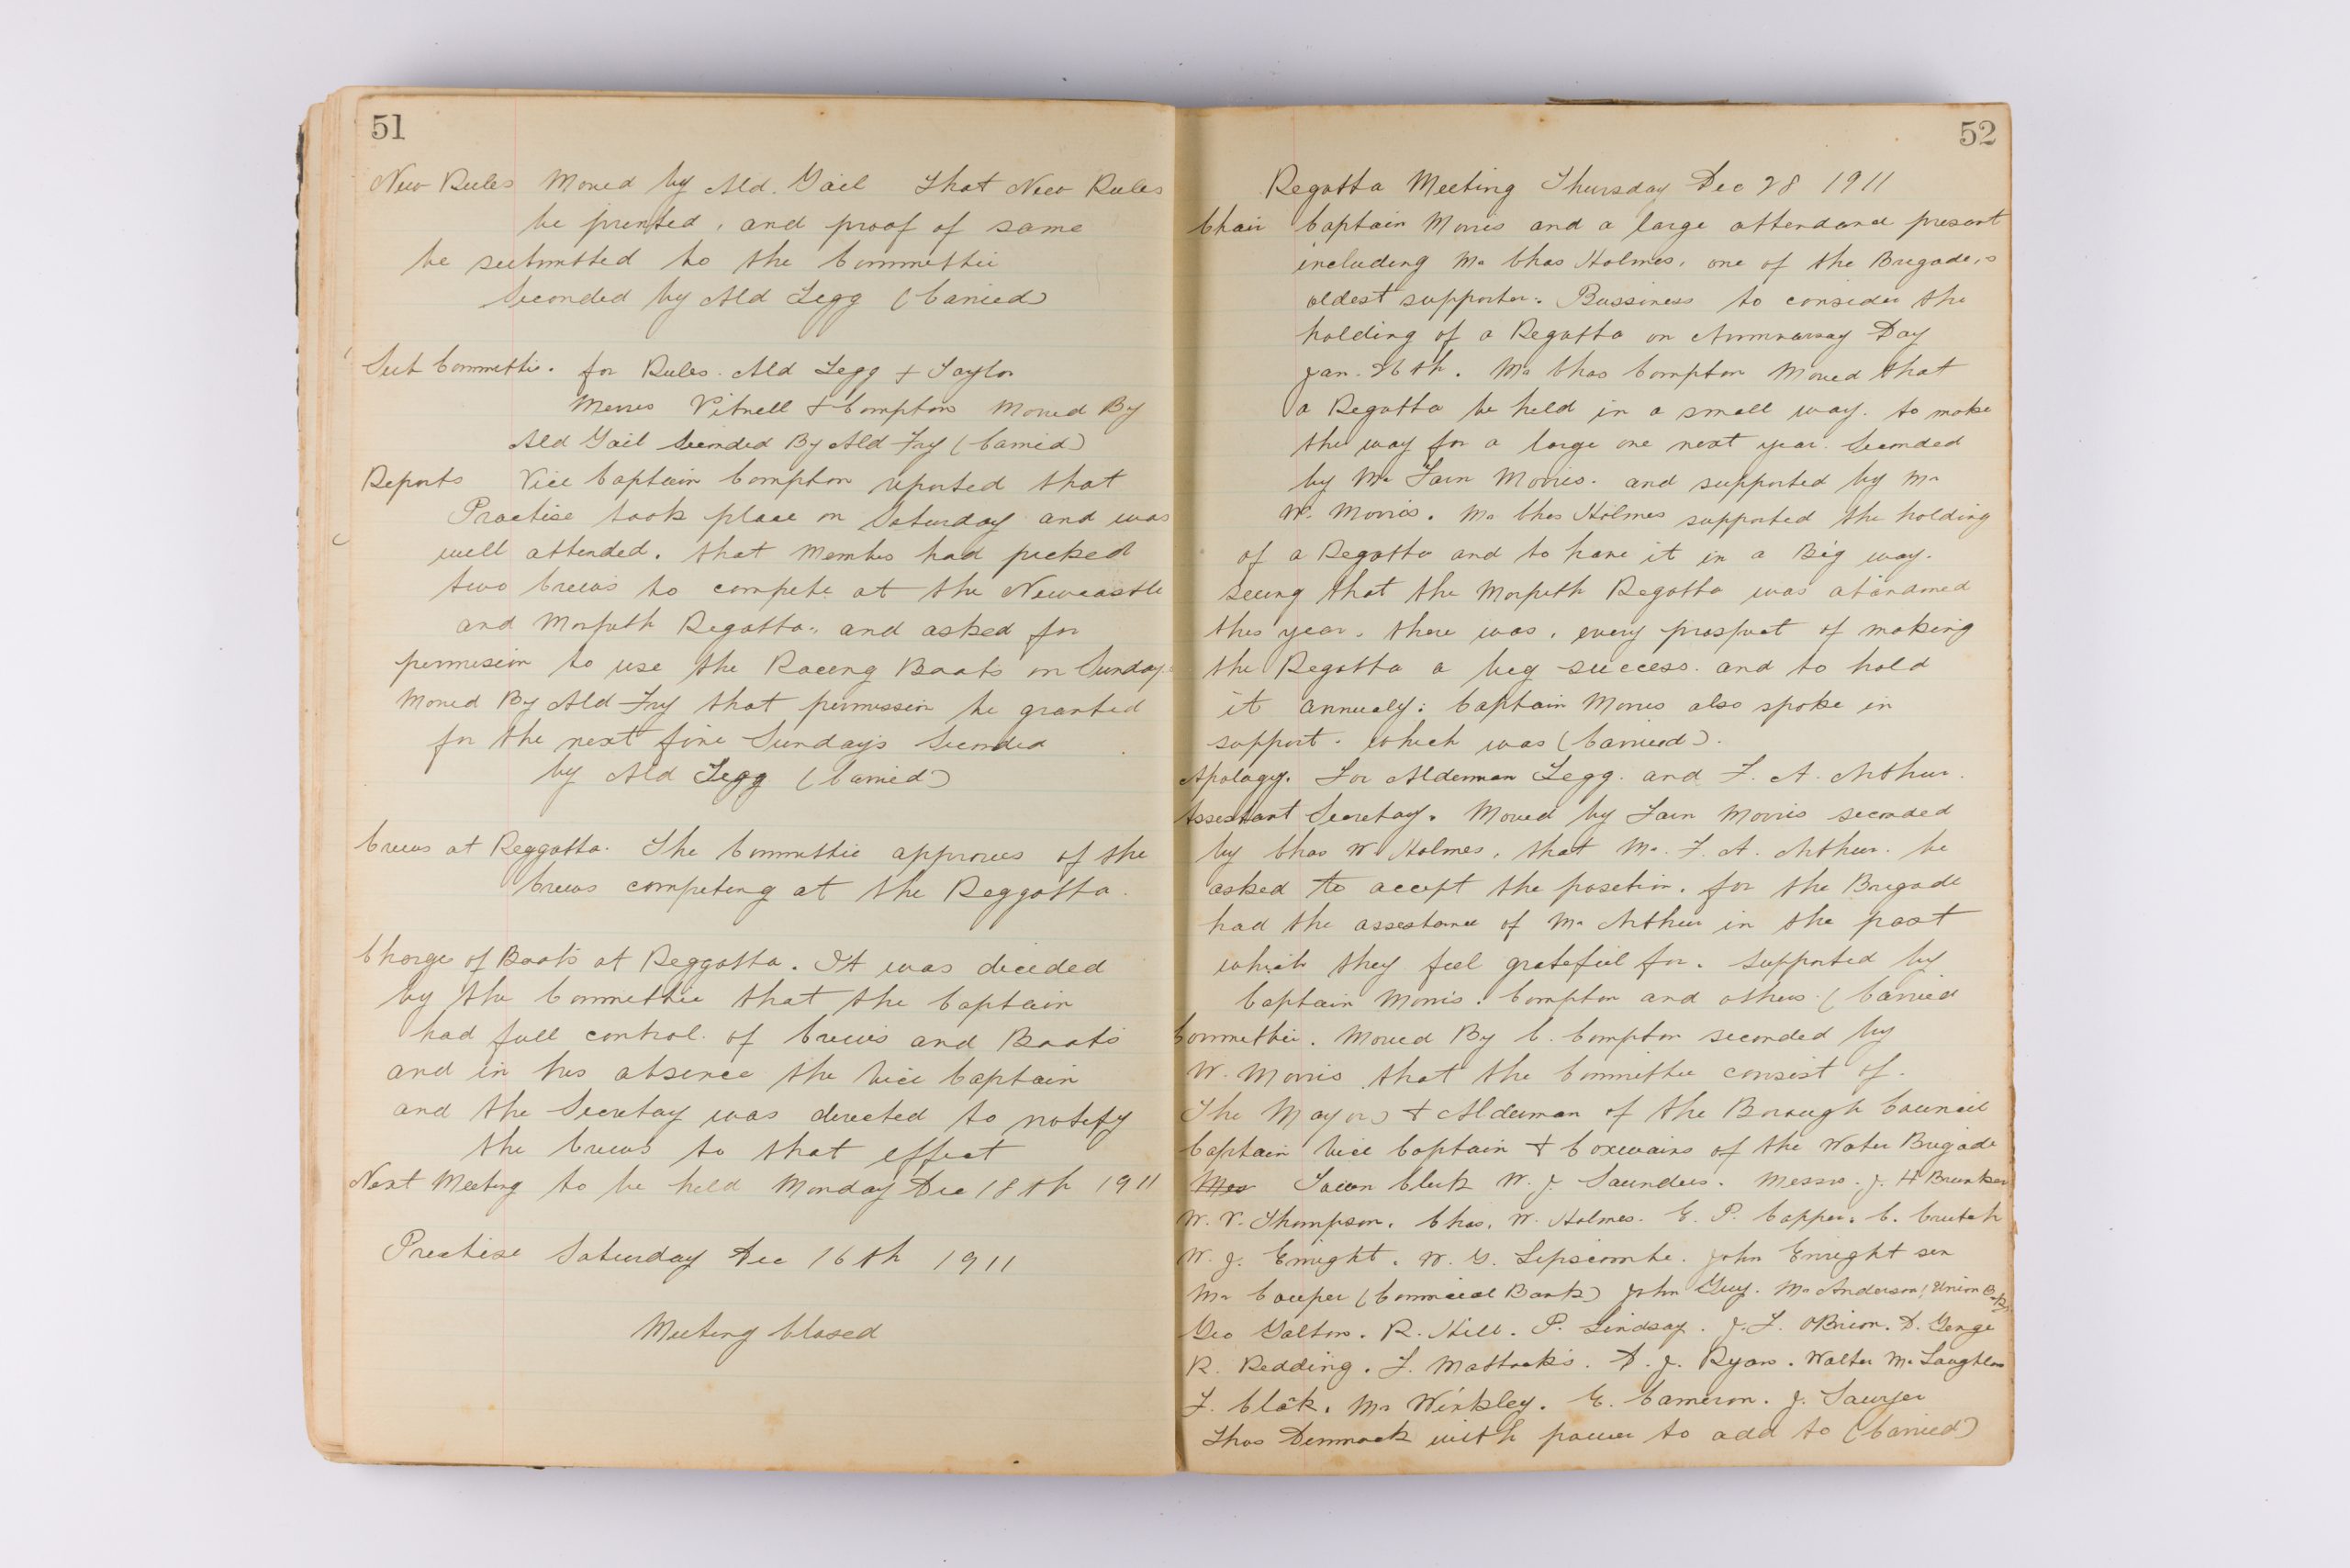 51
New Rules Moved by Ald. Gail That New Rules
be printed, and proof of same
be submitted to the Committie
Seconded by Ald Legg (Carried)
Sub Committie. for Rules. Ald Legg & Taylor
Messrs Pitnell & Compton Moved By
Ald Gail Seconded By Ald Fry (Carried)
Reports Vice Captain Compton reported that
Practise took place on Saturday and was
well attended. that Members had picked
two Crews to compete at the Newcastle
and Morpeth Regatta, and asked for
permision to use the Racing Boats on Sunday.
Moved By Ald Fry that permission be granted
for the next five Sundays Seconded
by Ald Legg (Carried)
Crews at Reggatta. The Committie approves of the
Crews competing at the Reggatta.
Charge of Boats at Reggatta. It was decided
by the Committie that the Captain
had full control. of Crews and Boats
and in his absence the Vice Captain
and the Secretay was directed to notify
the Crews to that effect
Next Meeting to be held Monday Dec 18th 1911
Practise Saturday Dec 16th 1911
Meeting Closed
52
Regatta Meeting Thursday Dec 28 1911
Chair Captain Morris and a large attendance present
including Mr Chas Holmes, one of the Brigade,s
oldest supporter. Bussiness to consider the
holding of a Regatta on Day
Jan. 26th. Mr Chas Compton Moved that
a Regatta be held in a small way. to make
the way for a large one next year. Seconded
by Mr Morris. and supported by Mr
W. Morris. Mr Chas Holmes supported the holding
of a Regatta and to have it in a Big way.
seeing that the Morpeth Regatta was
this year. there was, every prospect of making
the Regatta a big success. and to hold
it annualy. Captain Morris also spoke in
support. which was (Carried).
Apology. For Alderman Legg. and F. A. Arthur.
Assestant Secretay. Moved by Morris seconded
by Chas W. Holmes, that Mr. F. A. Arthur. be
asked to accept the position. for the Brigade
had the assestance of Mr Arthur in the past
which they feel grateful for. supported by
Captain Morris. Compton and others. (Carried
Committie. Moved By C. Compton seconded by
W. Morris that the Committee consist of.
The Mayor) & Alderman of the Borough Council
Captain Vice Captain & Coxwains of the Water Brigade
Mes Town Clerk W. J. Saunders. Messrs. J. H Brunker
W. V. Thompson. Chas. W. Holmes. E. P. Capper. C. Crutch
W. J. Enright. W. G. Lipscombe. John Enright sen
Mr Couper (Commercial Bank) John Guy. Mr Anderson (Union Bk)
Geo Galton. R. Hill. P. Lindsay. J. F. OBrion. D. Genge
R. Redding. F. Mattocks. D. J. Ryan. Walter McLaughlan
F. Clark. Mr Winkley. E. Cameron. J. Sawyer
Thos Dimmock with power to add to (Carried)